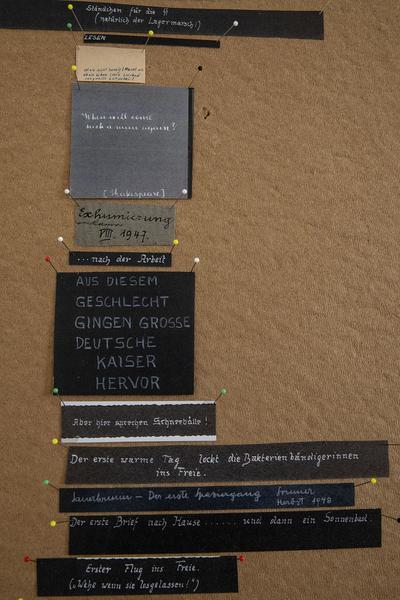 Ständchen für die
(natürlich der Lagermarsch!)
LESEN
"When will come
such a man again?"
[Shakespeare]
Exhumierung
VIII. 1947.
...nach der Arbeit
AUS DIESEM
GESCHLECHT
GINGEN GROSSE
DEUTSCHE
KAISER
HERVOR
Aber hier sprechen Schneebälle!
Der erste warme Tag lockt die Bakterienbändigerinnen
ins Freie.
Der erste Spaziergang
Herbst 1948
Der erste Brief nach Hause....... und dann ein Sonnenbad.
Erster Flug ins Freie.
("Wehe wenn sie losgelassen!")